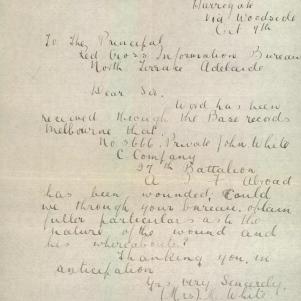 Harrogate
Via Woodside
Oct 9th
To The Principal
Red Cross Information Bureau
North Terrace Adelaide
Dear Sir.
Word has been
received through the Base records
Melbourne that.
No 3666. Private John White
C Company
27th Battalion
A I F Abroad
has been wounded; Could
we through your bureau, obtain
fuller particulars as to the
nature of the wound and
his whereabouts?
Thanking you, in
anticipation
Yrs very Sincerely,
(Mrs) White